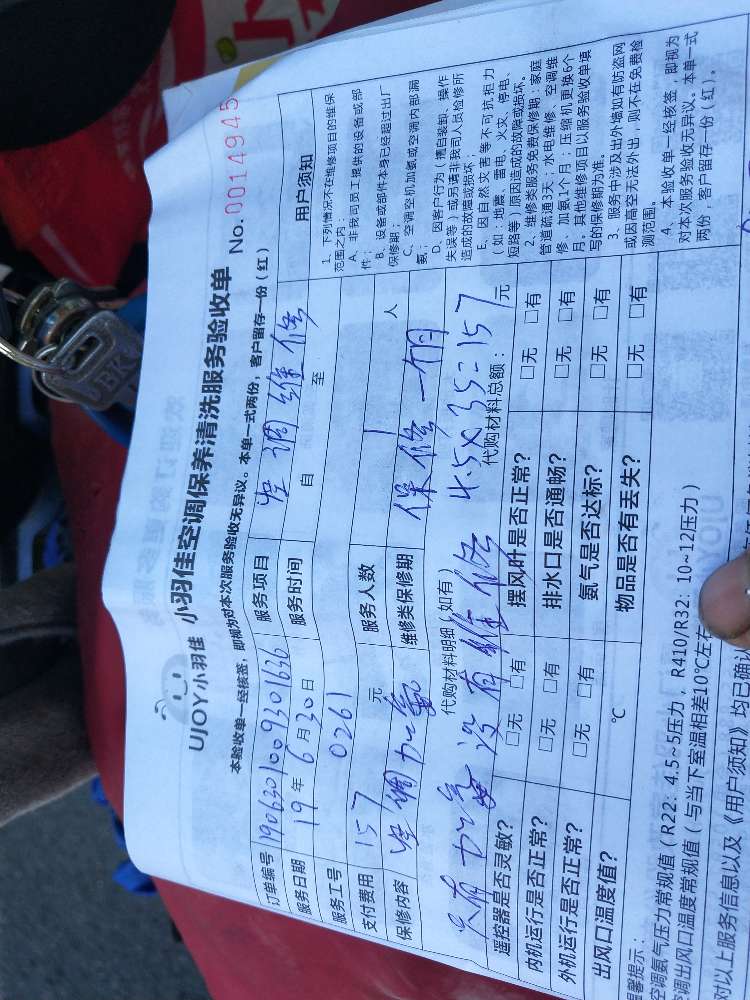 UJOY小羽佳 小羽佳空调保养清洗服务验收单 No.0014945
本验收单一经核签，即视为对本次服务验收无异议。本单一式两份，客户留存一份（红）
订单编号 1906301009301636 服务项目 空调维修
服务日期 19年6月30日 服务时间 自 至
服务工号 0261
支付费用 157 元 服务人数 1 人
保修内容 空调加氟 维修类保修期 保修一个月
代购材料明细（如有） 代购材料总额： 元
只有加氟 没有维修 4.5×35=157
遥控器是否灵敏？ □无 □有 摆风叶是否正常？ □无 □有
内机运行是否正常？ □无 □有 排水口是否通畅？ □无 □有
外机运行是否正常？ □无 □有 氨气是否达标？ □无 □有
出风口温度值？ ℃ 物品是否有丢失？ □无 □有
用户须知
1、下列情况不在维修项目的维保
范围之内：
A、非我司员工提供的设备或部
件；
B、设备或部件本身已经超过出厂
保修期；
C、空调空机加氨或空调内部漏
氨；
D、因客户行为（擅自装卸、操作
失误等）或另请非我司人员检修所
造成的故障或损坏；
E、因自然灾害等不可抗拒力
（如：地震、雷电、火灾、停电、
短路等）原因造成的故障或损坏。
2、维修类服务免费保修期：家庭
管道疏通3天；水电维修、空调维
修、加氨1个月；压缩机更换6个
月，其他维修项目以服务验收单填
写的保修期为准。
3、服务中涉及出外墙如有防盗网
或因高空无法外出，则不在免费检
测范围。
4、本验收单一经核签，即视为
对本次服务验收无异议。本单一式
两份，客户留存一份（红）。
温馨提示：
空调氨气压力常规值（R22：4.5~5压力，R410/R32：10~12压力）
调出风口温度常规值（与当下室温相差10℃左右
对以上服务信息以及《用户须知》均已确认